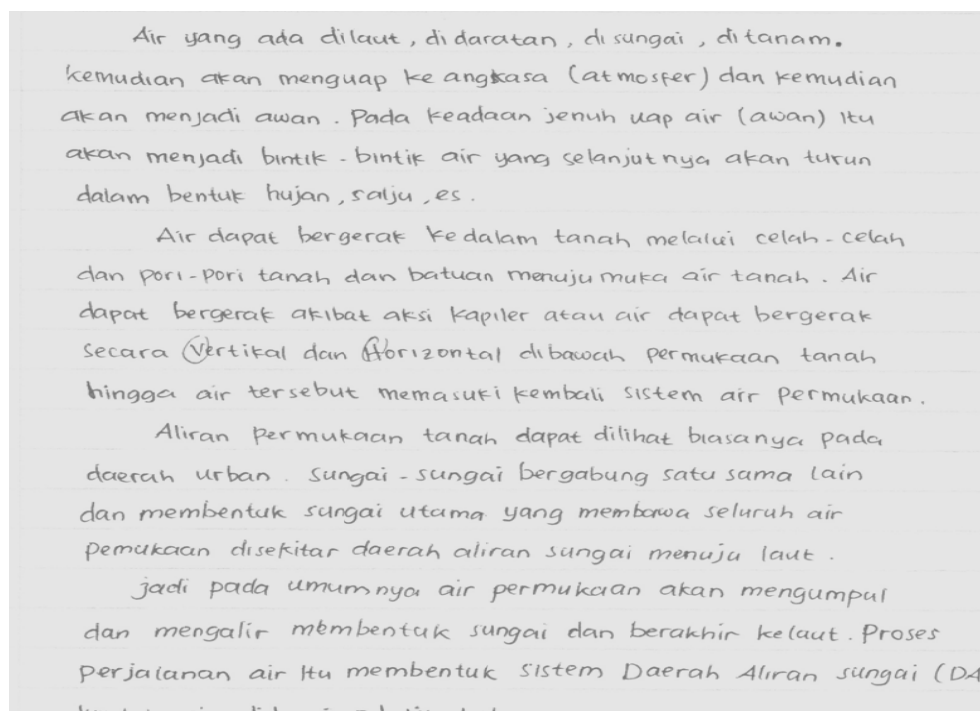 Air yang ada dilaut, didaratan, disungai, ditanam.
kemudian akan menguap ke angkasa (atmosfer) dan kemudian
akan menjadi awan. Pada keadaan jenuh uap air (awan) itu
akan menjadi bintik-bintik air yang selanjutnya akan turun
dalam bentuk hujan, salju, es.
Air dapat bergerak kedalam tanah melalui celah-celah
dan pori-pori tanah dan batuan menuju muka air tanah. Air
dapat bergerak akibat aksi kapiler atau air dapat bergerak
secara Vertikal dan Horizontal dibawah permukaan tanah
hingga air tersebut memasuki kembali sistem air permukaan.
Aliran permukaan tanah dapat dilihat biasanya pada
daerah urban. sungai-sungai bergabung satu sama lain
dan membentuk sungai utama yang membawa seluruh air
pemukaan disekitar daerah aliran sungai menuju laut.
jadi pada umumnya air permukaan akan mengumpul
dan mengalir membentuk sungai dan berakhir kelaut. Proses
perjalanan air itu membentuk sistem Daerah Aliran sungai (DA